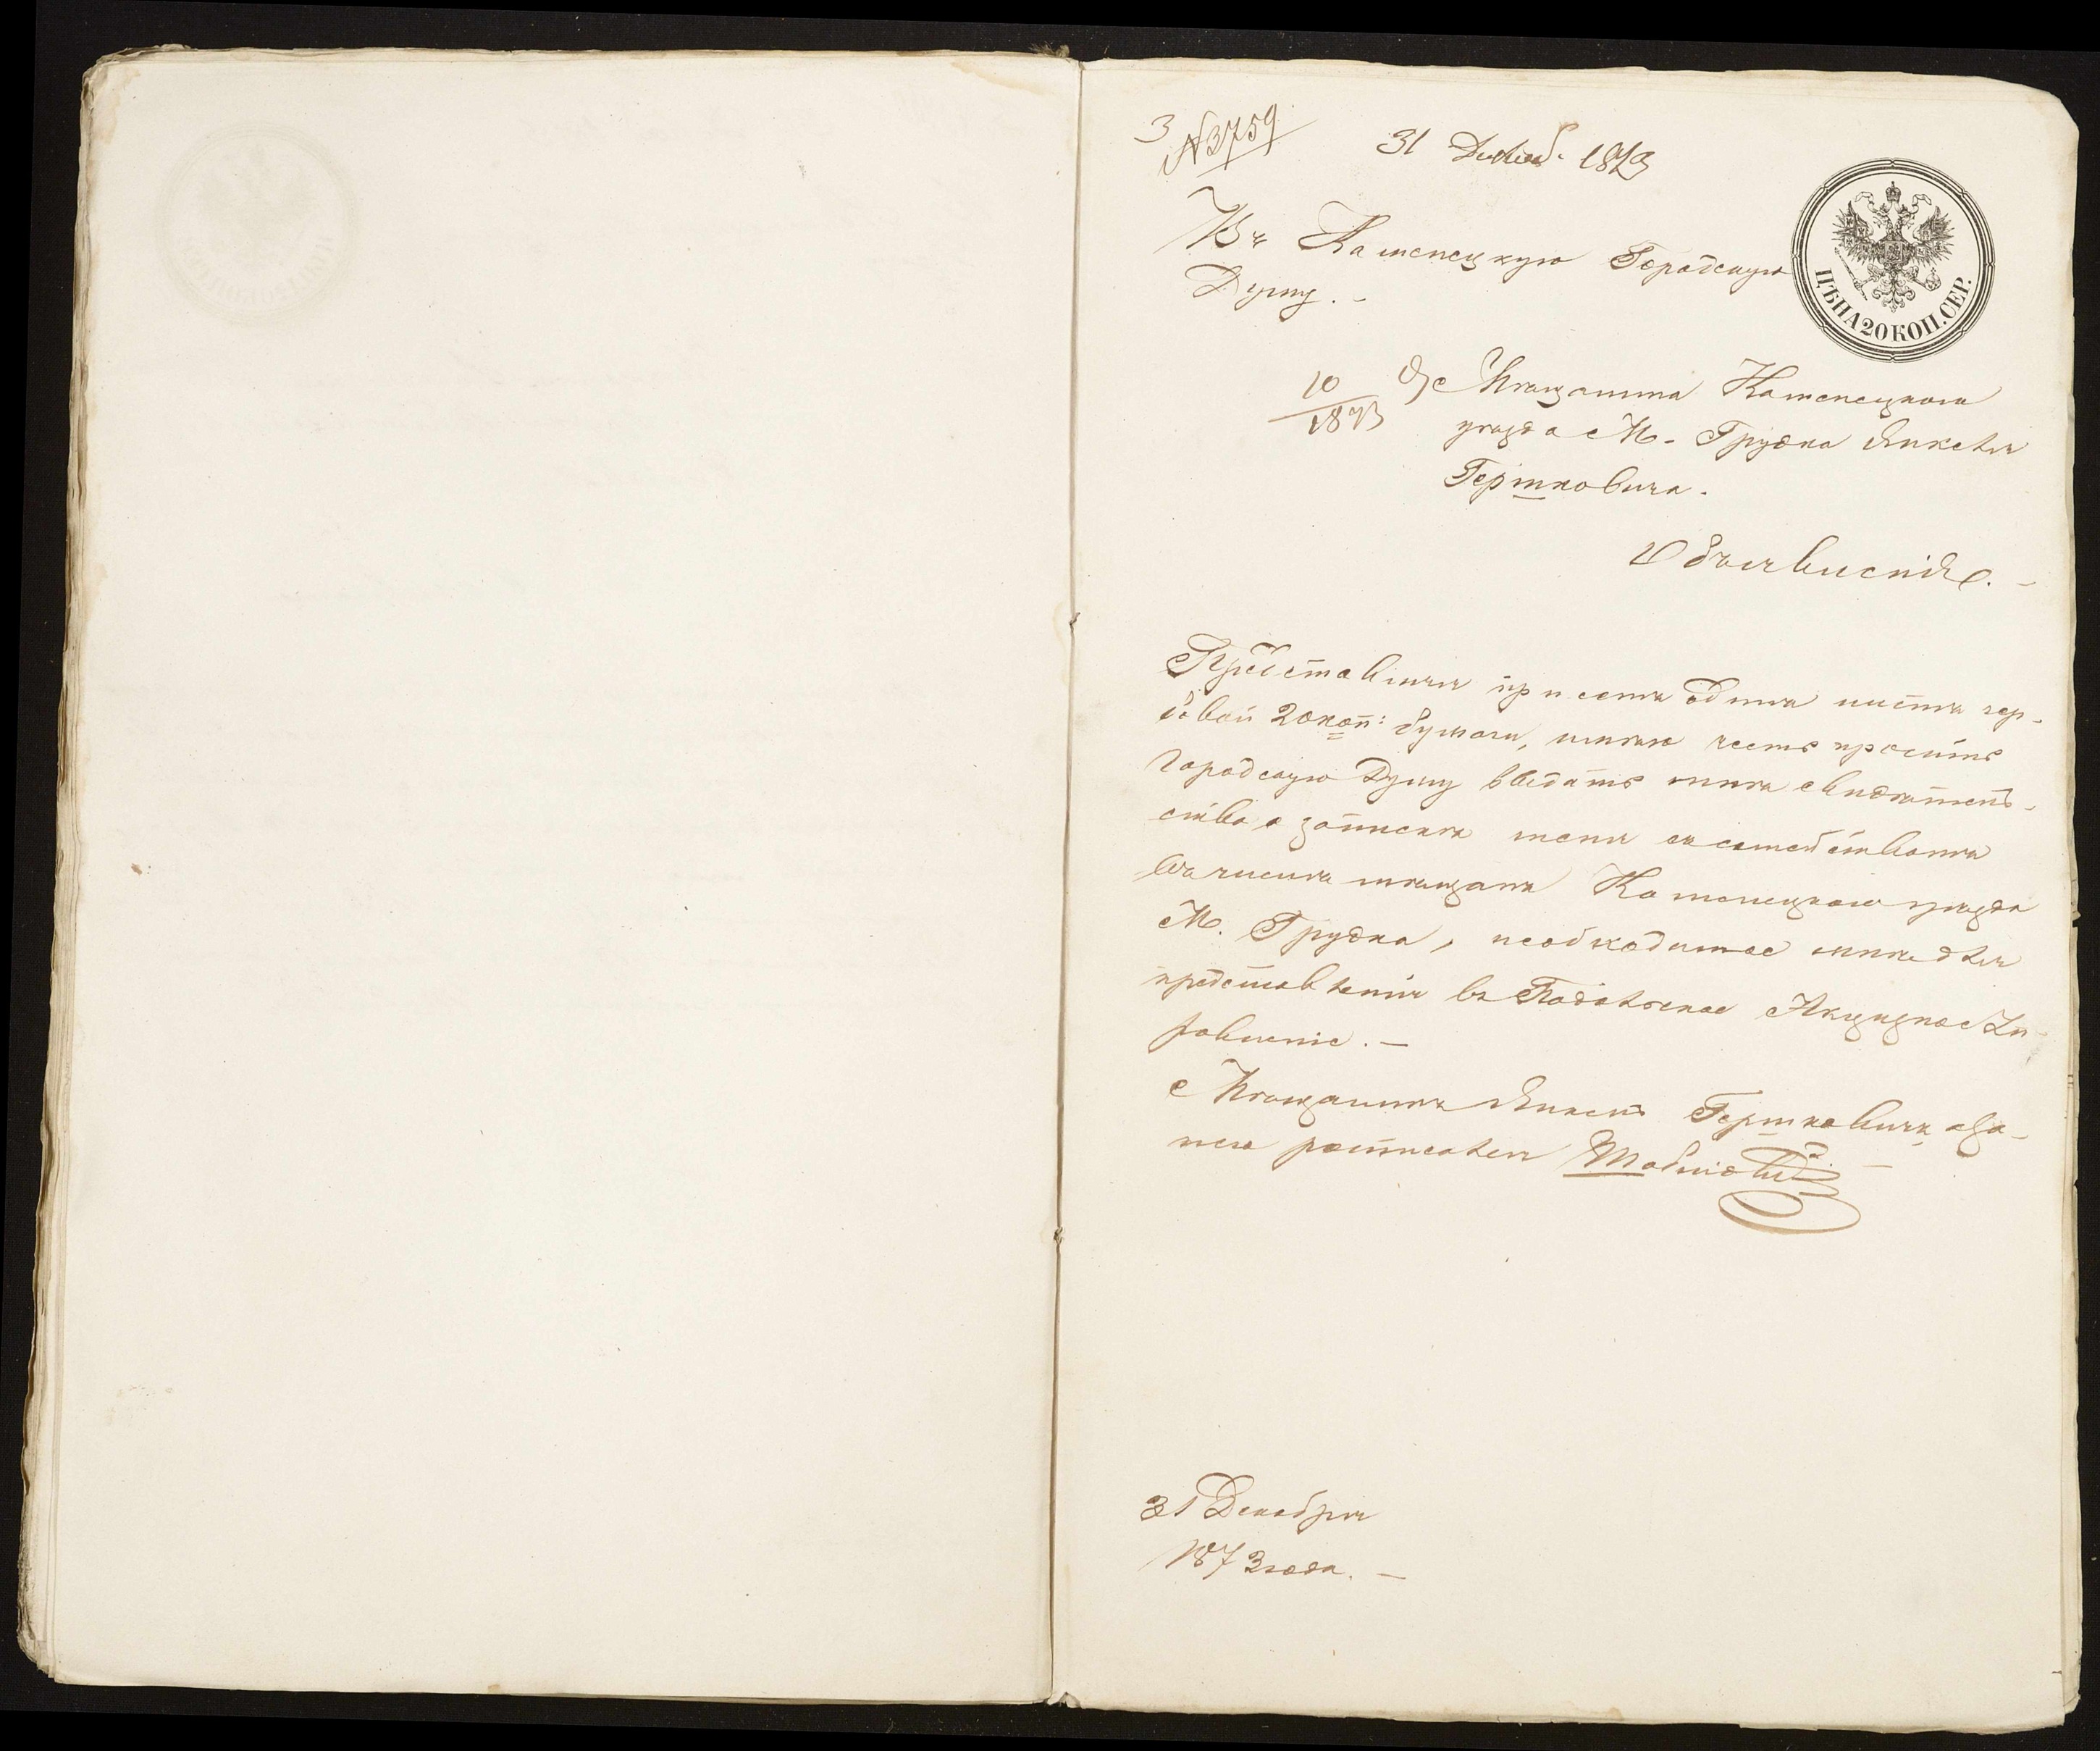 3 № 3759
31 Декаб. 1873
ЦѢНА 20 КОП. СЕР.
Въ Каменецкую Городскую
Думу. -
10
1873
Мѣщанина Каменецкаго
уѣзда М. Грудка Янкеля
Гершковича.
Объявленіе. -
Представляя при семъ одинъ листъ гер-
бовой 20 коп: бумаги, имѣю честь просить
Городскую Думу выдать мнѣ свидѣтель-
ство о запискѣ меня съ семействомъ
въ число мѣщанъ Каменецкаго уѣзда
М. Грудка, необходимое мнѣ для
представленія въ Подольское Акцизное Уп-
равленіе. -
Мѣщанинъ Янкель Гершковичъ, а за
него росписался
31 Декабря
1873 года. -